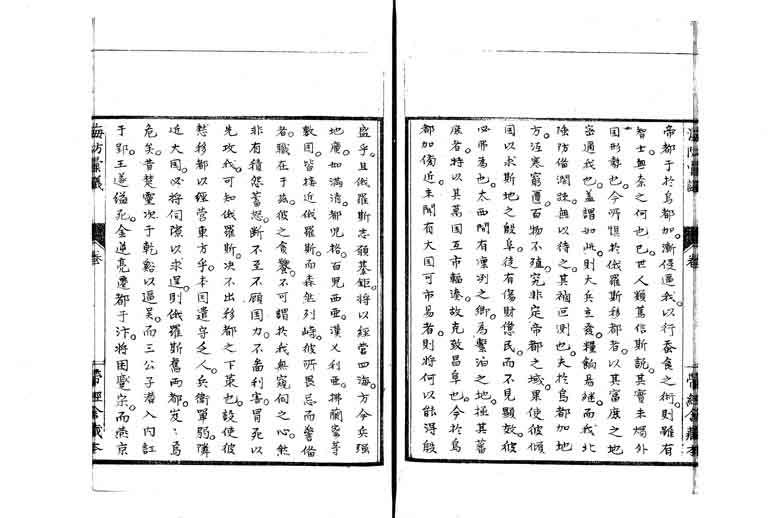 帝都于於烏都加漸侵逼我以行蚕食之術則雖有
智士無奈之何也已世人類篤信斯説其實未燭外
国形勢也今所惧於俄羅斯移都者以其富庶之地
密邇我也蓋謂如此則大兵立發糧餉易継而我北
陲防備濶踈無以待之其禍叵測也夫於烏都加地
方冱寒窮遭百物不殖究非定帝都之域果使彼傾
国以求斯地之殷阜徒有傷財憊民而不見顕效彼
必弗為也太西間有凛冽之鄉為繫泊之地極其蕃
庶者特以其萬国互市輻湊故克致昌阜也今於烏
都加傷近未聞有大国可市易者則將何以能得殷
盛乎且俄羅斯志願基鉅將以經營四海方今兵強
地廣如滿清都児格百児西亜漢乂利亜拂蘭察等
數国皆接近俄羅斯而森然列峙彼所畏忌而警備
者職在于茲彼之貪饕不可謂於我無窺伺之心然
非有積怨蓄怒断不至不顧国力不啚利害冒死以
先攻我可知俄羅斯決不出移都之下策也設使彼
愁移都以經營東方乎本国遣守乏人兵衛單弱隣
近大国必將伺隙以求逞則俄羅斯舊两都岌〻焉
危矣昔楚靈次于乾谿以逼吴而三公子潜入内訌
于郢王遂縊死金逆亮遷都于汴將困蹙宗而燕京
海防彙議
卷
帶經倉藏本